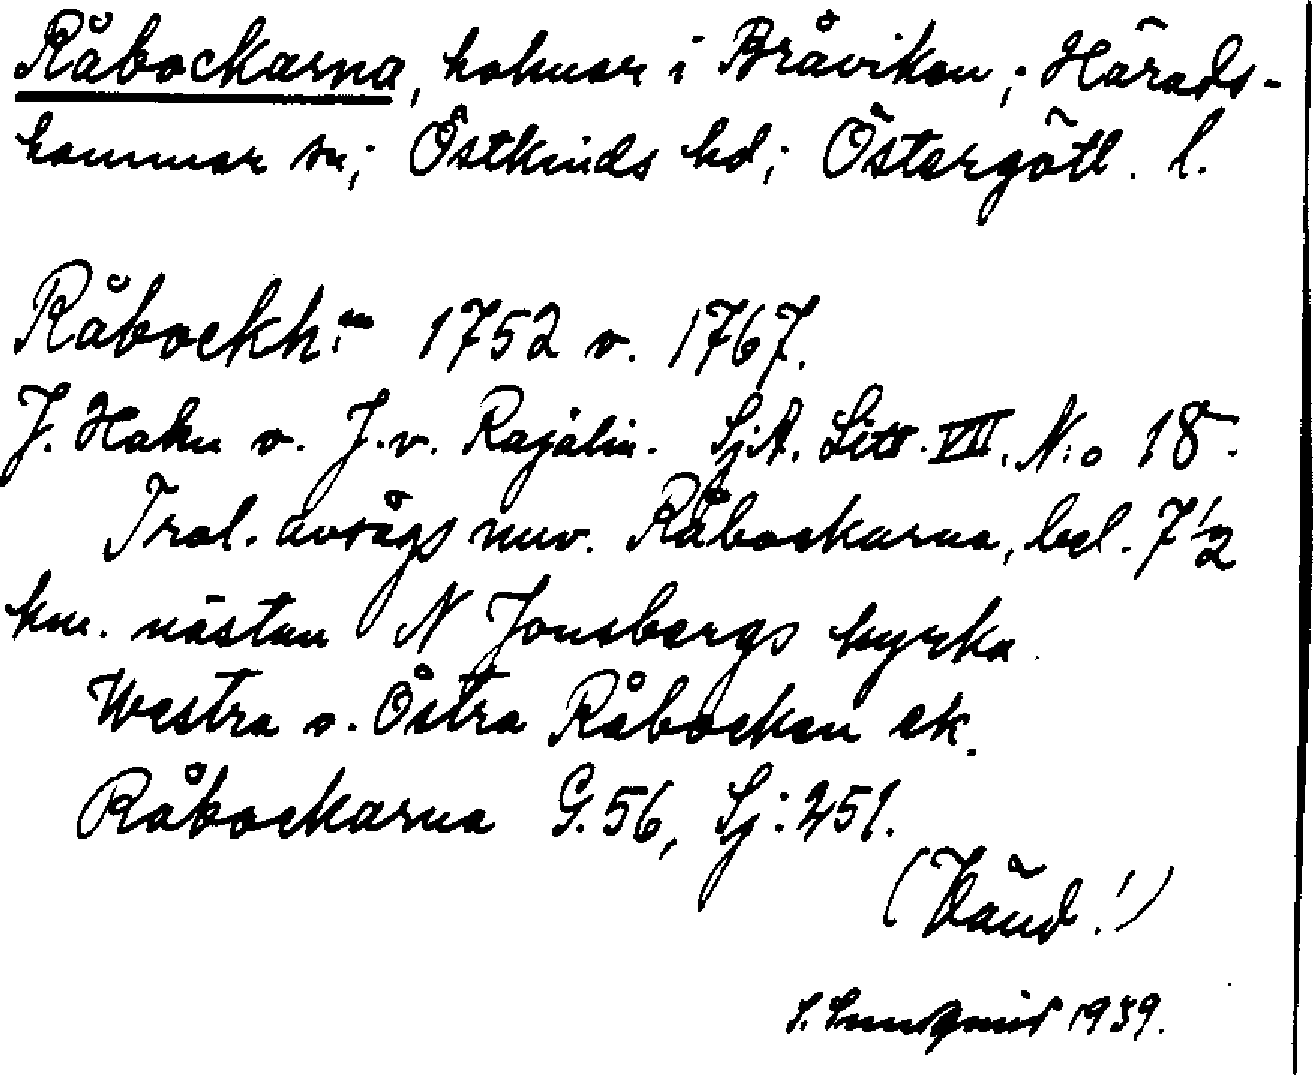 Råbockarna, holmar i Bråviken; Härads-
hammar sn; Östkinds hd; Östergötl. l.
Råbockh:ne 1752 o. 1767.
J. Hahn o. J. v. Rajalin. Sj.A. Litt. VII. N:o 18.
Trol. avsågs nuv. Råbockarna, bel. 7 1/2
km. nästan N Jonsbergs kyrka.
Westra o. Östra Råbocken ek.
Råbockarna G. 56, Sj: 251.
(Vänd!)
1939.